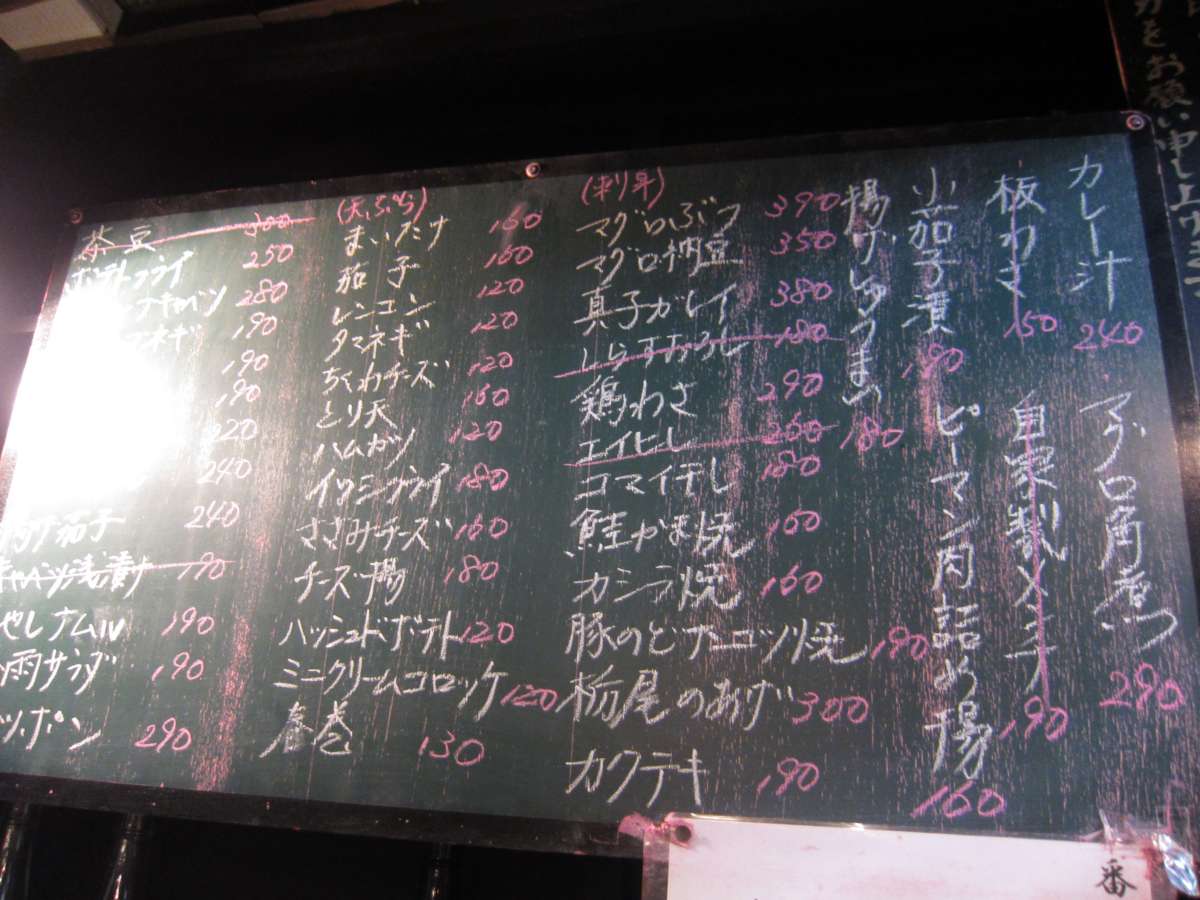 茶豆 300
ポテトフライ 250
キャベツ 280
ネギ 190
190
190
220
240
茄子 240
キャベツ浅漬け 190
もやしナムル 190
雨サラダ 190
ツポポン 290
(天ぷら)
まいたけ 160
茄子 160
レンコン 120
タマネギ 120
ちくわチーズ 120
とり天 160
ハムカツ 120
イワシフライ 180
ささみチーズ 160
チーズ揚 180
ハッシュドポテト 120
ミニクリームコロッケ 120
春巻 130
(刺身)
マグロぶつ 390
マグロ納豆 350
真子ガレイ 380
しらすおろし 180
鶏わさ 290
エイヒレ 260
コマイ干し 180
鮭かま焼 160
カシラ焼 160
豚のどナンコツ焼 190
栃尾のあげ 300
カクテキ 190
カレー汁 240
マグロ角煮 290
板わさ 150
自家製メンチ 190
小茄子漬 190
ピーマン肉詰め揚 160
揚げしゅうまい 180
をお願い申し上げます
番